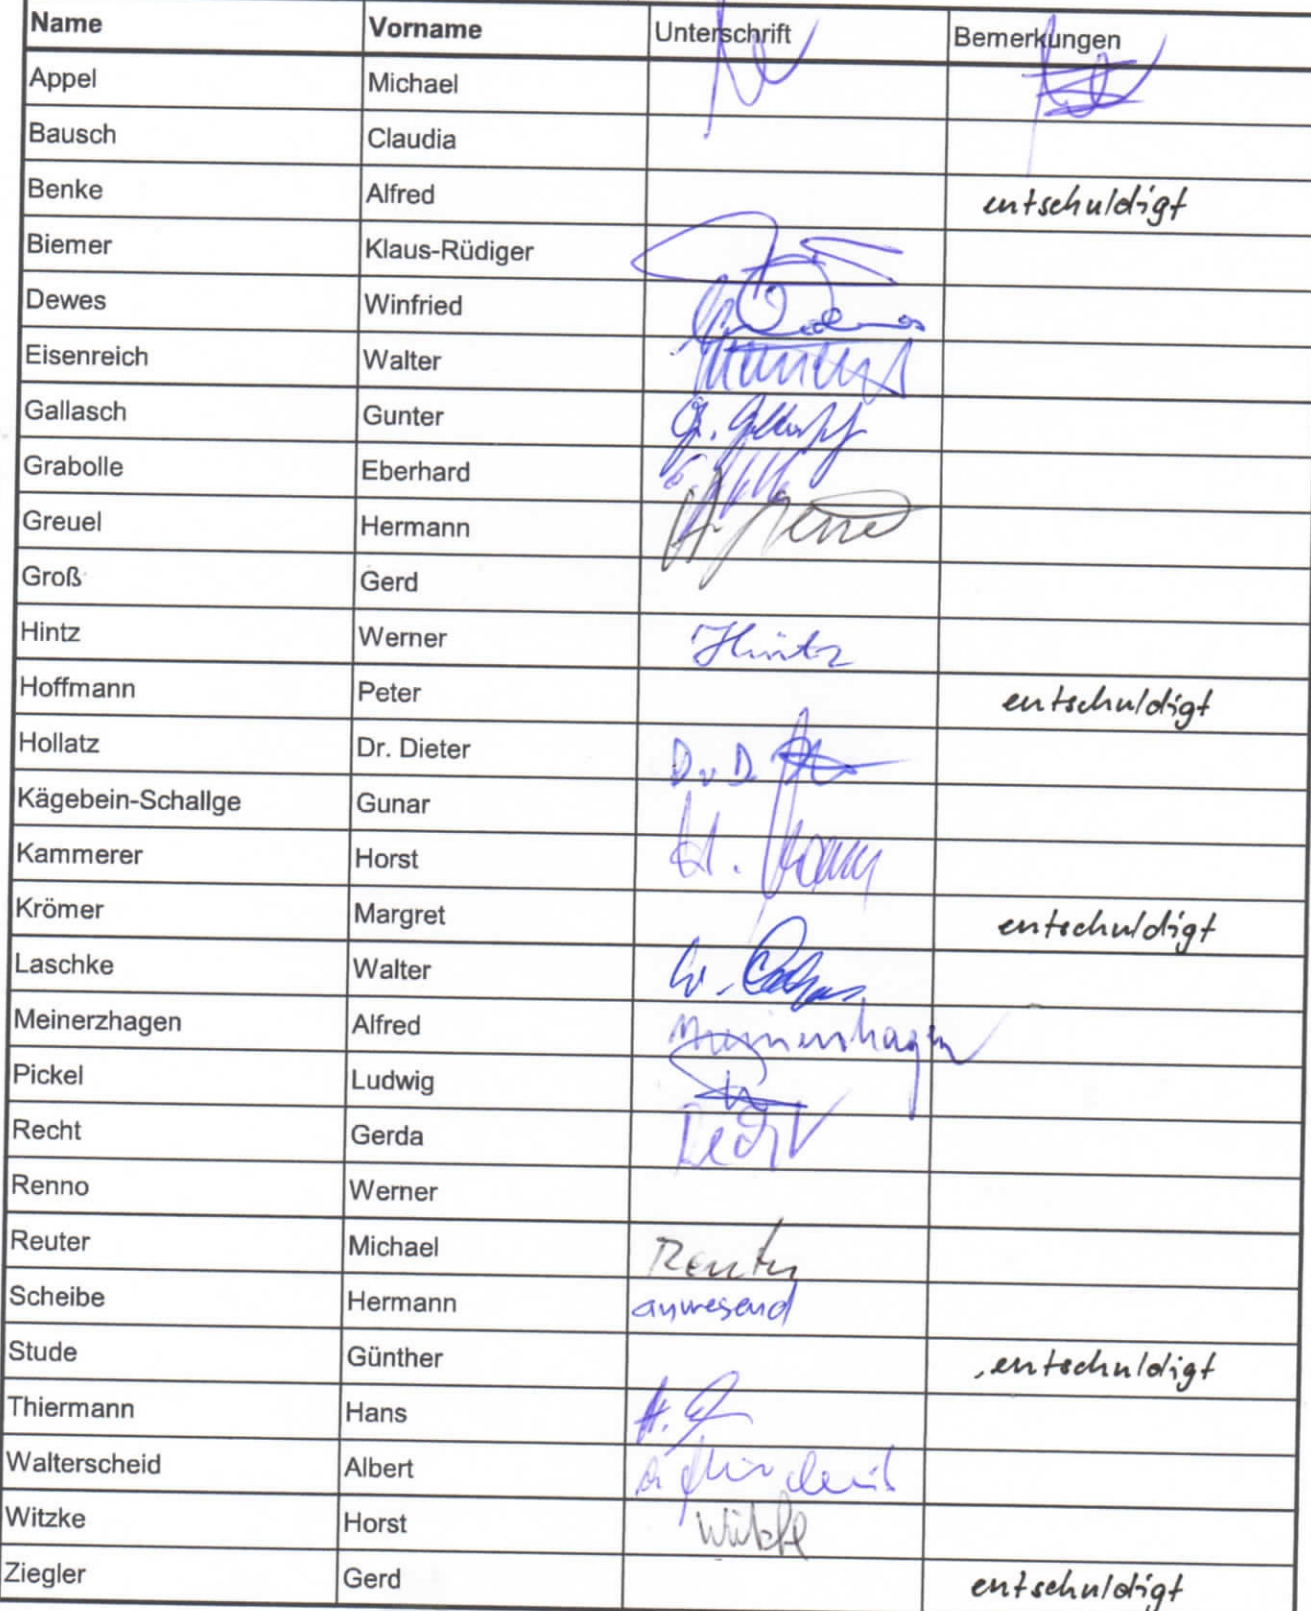 Name Vorname Unterschrift Bemerkungen
Appel Michael
Bausch Claudia
Benke Alfred entschuldigt
Biemer Klaus-Rüdiger
Dewes Winfried
Eisenreich Walter
Gallasch Gunter
Grabolle Eberhard
Greuel Hermann
Groß Gerd
Hintz Werner Hintz
Hoffmann Peter entschuldigt
Hollatz Dr. Dieter
Kägebein-Schallge Gunar
Kammerer Horst H.
Krömer Margret entschuldigt
Laschke Walter W.
Meinerzhagen Alfred Meinerzhagen
Pickel Ludwig
Recht Gerda Recht
Renno Werner
Reuter Michael Reuter
Scheibe Hermann anwesend
Stude Günther entschuldigt
Thiermann Hans H.
Walterscheid Albert
Witzke Horst Witzke
Ziegler Gerd entschuldigt